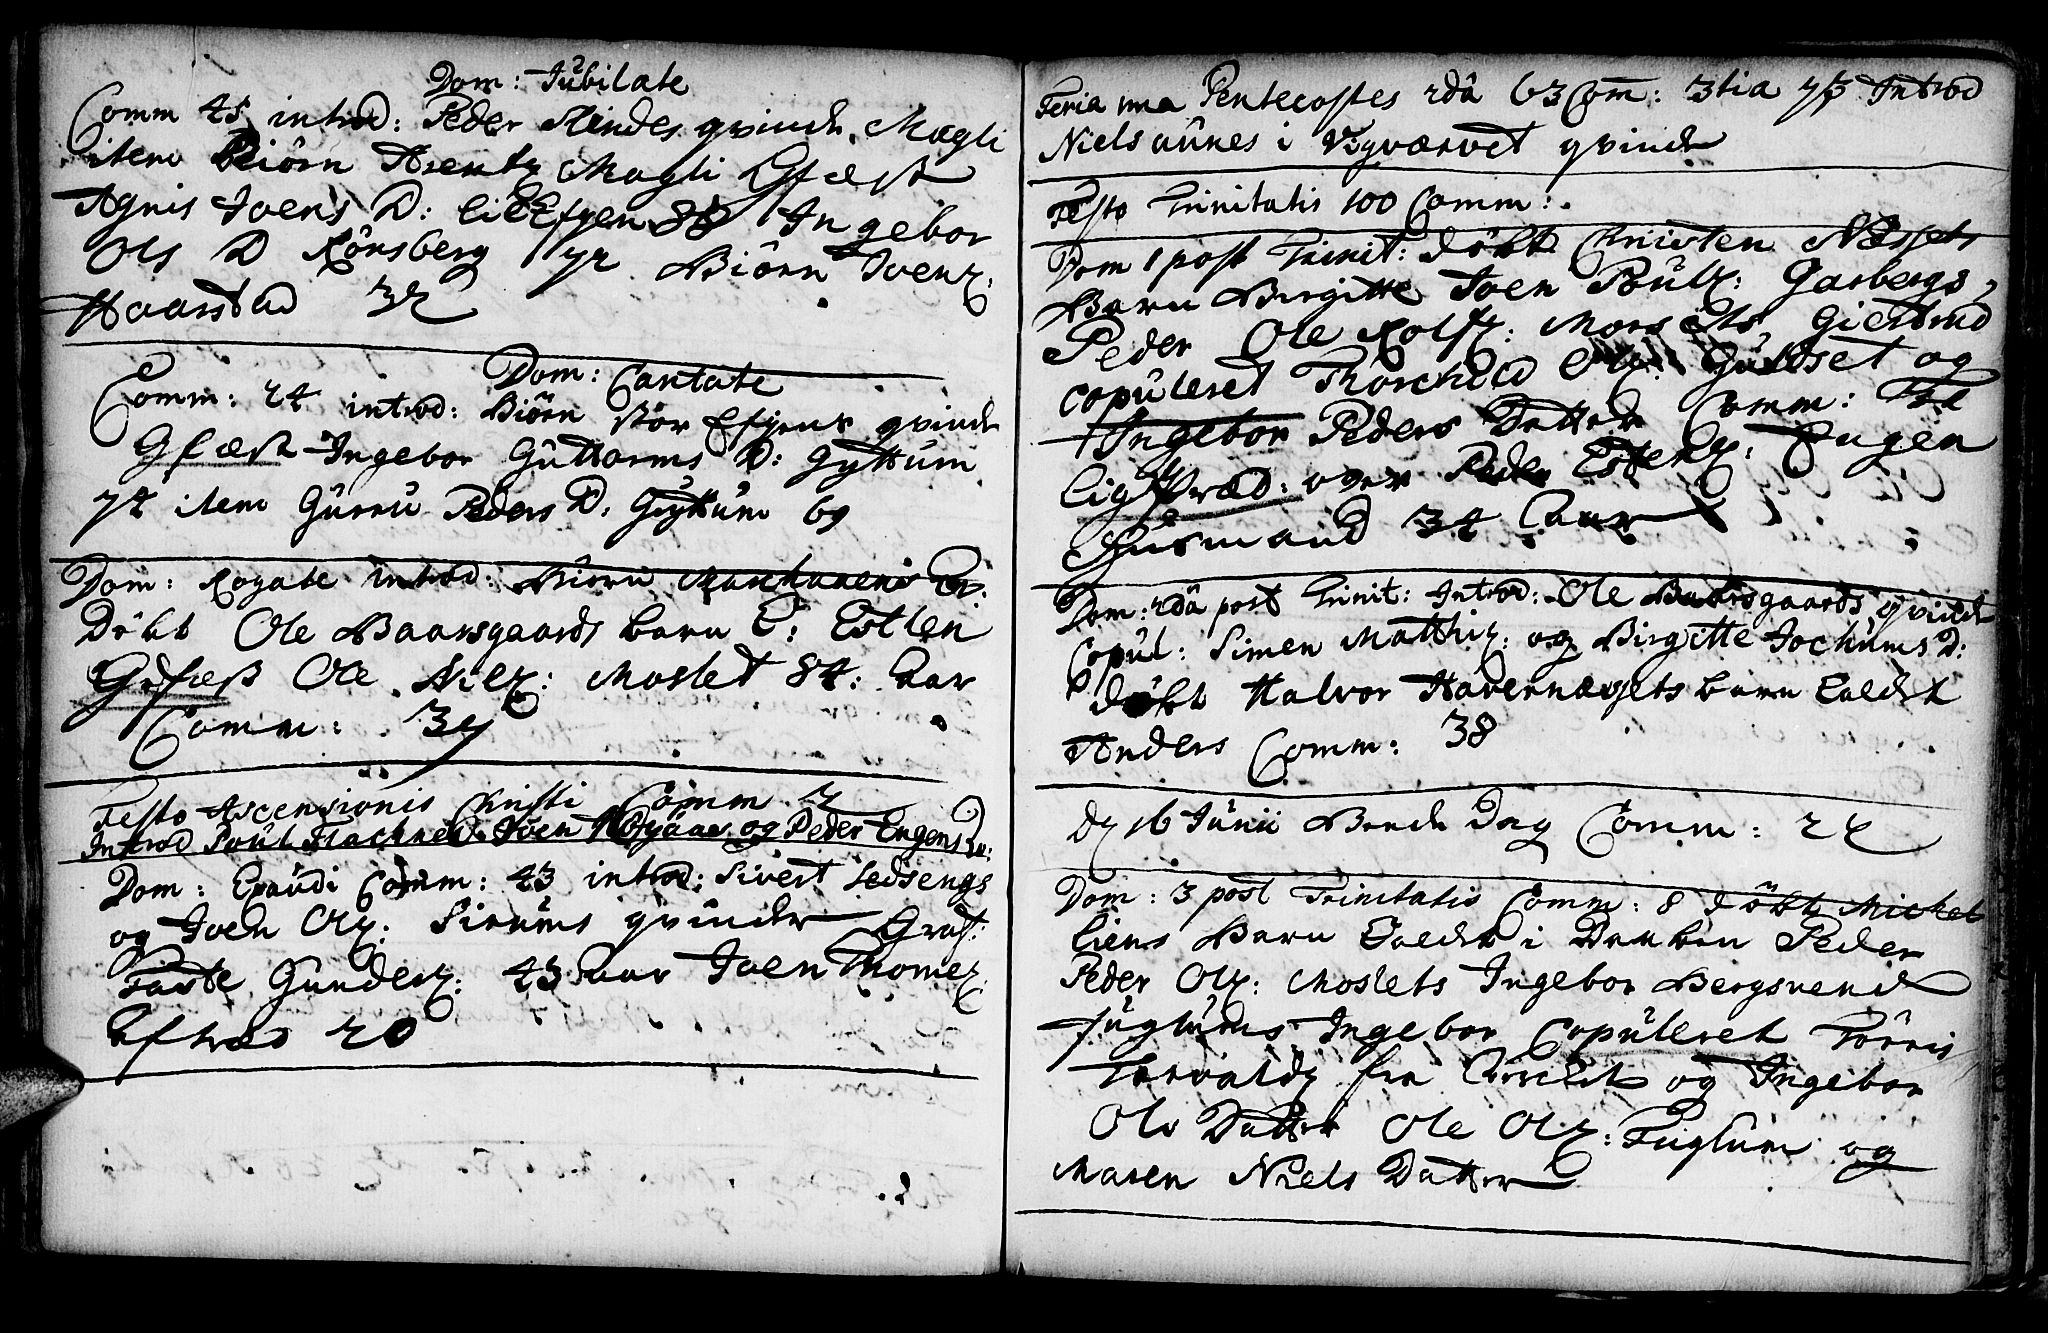 Dom: Jubilate
Comm 45 introd: Peder Rindes qvinde. Mogli
item Biörn Arentz Mogli Gfæst
Agnis Joens D: Lil Efyen 88 Ingebor
Ols D Rönsberg 72 Biörn Joenz:
Haarstad 32
Dom: Cantate
Comm: 24 introd: Biörn stör Efyens qvinde
Gfæst Ingebor Guttorms D: Gyttum
74 item Gurru Peders D: Gyttum 69
Dom: Rogate introd: Biörn
Döbt Ole Baarsgaards barn E: Estlen
Gfæst Ole Nilz: Moslet 84: aar
Comm: 34
Festo Ascensionis Christi Comm 2
Introd Poul Flachne Joen og Peder Engens
Dom: Exaudi Comm: 43 introd: Sivert Sedsengs
og Joen Olz: Sirums qvinder Graf:
Faste Gunderz: 43 aar Joen Thomez
20
Feria Pentecostes 2dâ 63 Com: 3tia 73 Introd
Niels aunes i Vigværvet qvinde
Festo Trinitatis 100 Comm:
Dom 1 post Trinit: döbt Christen Næssets
Barn Birgitte Joen Poulz: Garbergs
Peder Ole Rolfz: Morsets Giertrud
copuleret Thorchild Olz: Gulset og
Ingebor Peders Datter Comm:
ligPræd: over Peder Estenz: Engen
Husmand 34 aar
Dom: 2dâ post Trinit: Introd: Ole Baarsgaards qvinde
Copul: Simen Matthiz: og Birgitte Jochums D:
döbt Halvor Havernæssets barn kaldet
Anders Comm: 38
Dz 16 Junii Beede Dag Comm: 22
Dom: 3 post Trinitatis Comm: 8 döbt Michel
Liens Barn kaldet i Peder
Peder Olz: Moslets Ingebor Bergsvend
fuglums Ingebor Copuleret Törris
Torvaldz fra og Ingebor
Ols Datter Ole Olz: Fuglum og
Maren Niels Datter